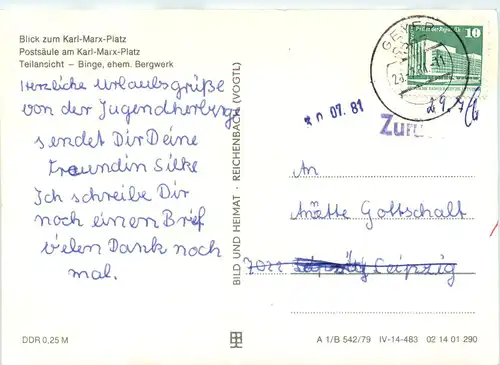 Blick zum Karl-Marx-Platz
Postsäule am Karl-Marx-Platz
Teilansicht – Binge, ehem. Bergwerk
Herzliche Urlaubsgrüße
von der Jugendherberge
sendet Dir Deine
Freundin Silke
Ich schreibe Dir
noch einen Brief
vielen Dank noch
mal.
DDR 0,25 M
BILD UND HEIMAT · REICHENBACH (VOGTL)
GEYER
10
29.7
07. 81
Zurück
An
Anette Gottschalt
7022 Leipzig Leipzig
A 1/B 542/79 IV-14-483 02 14 01 290